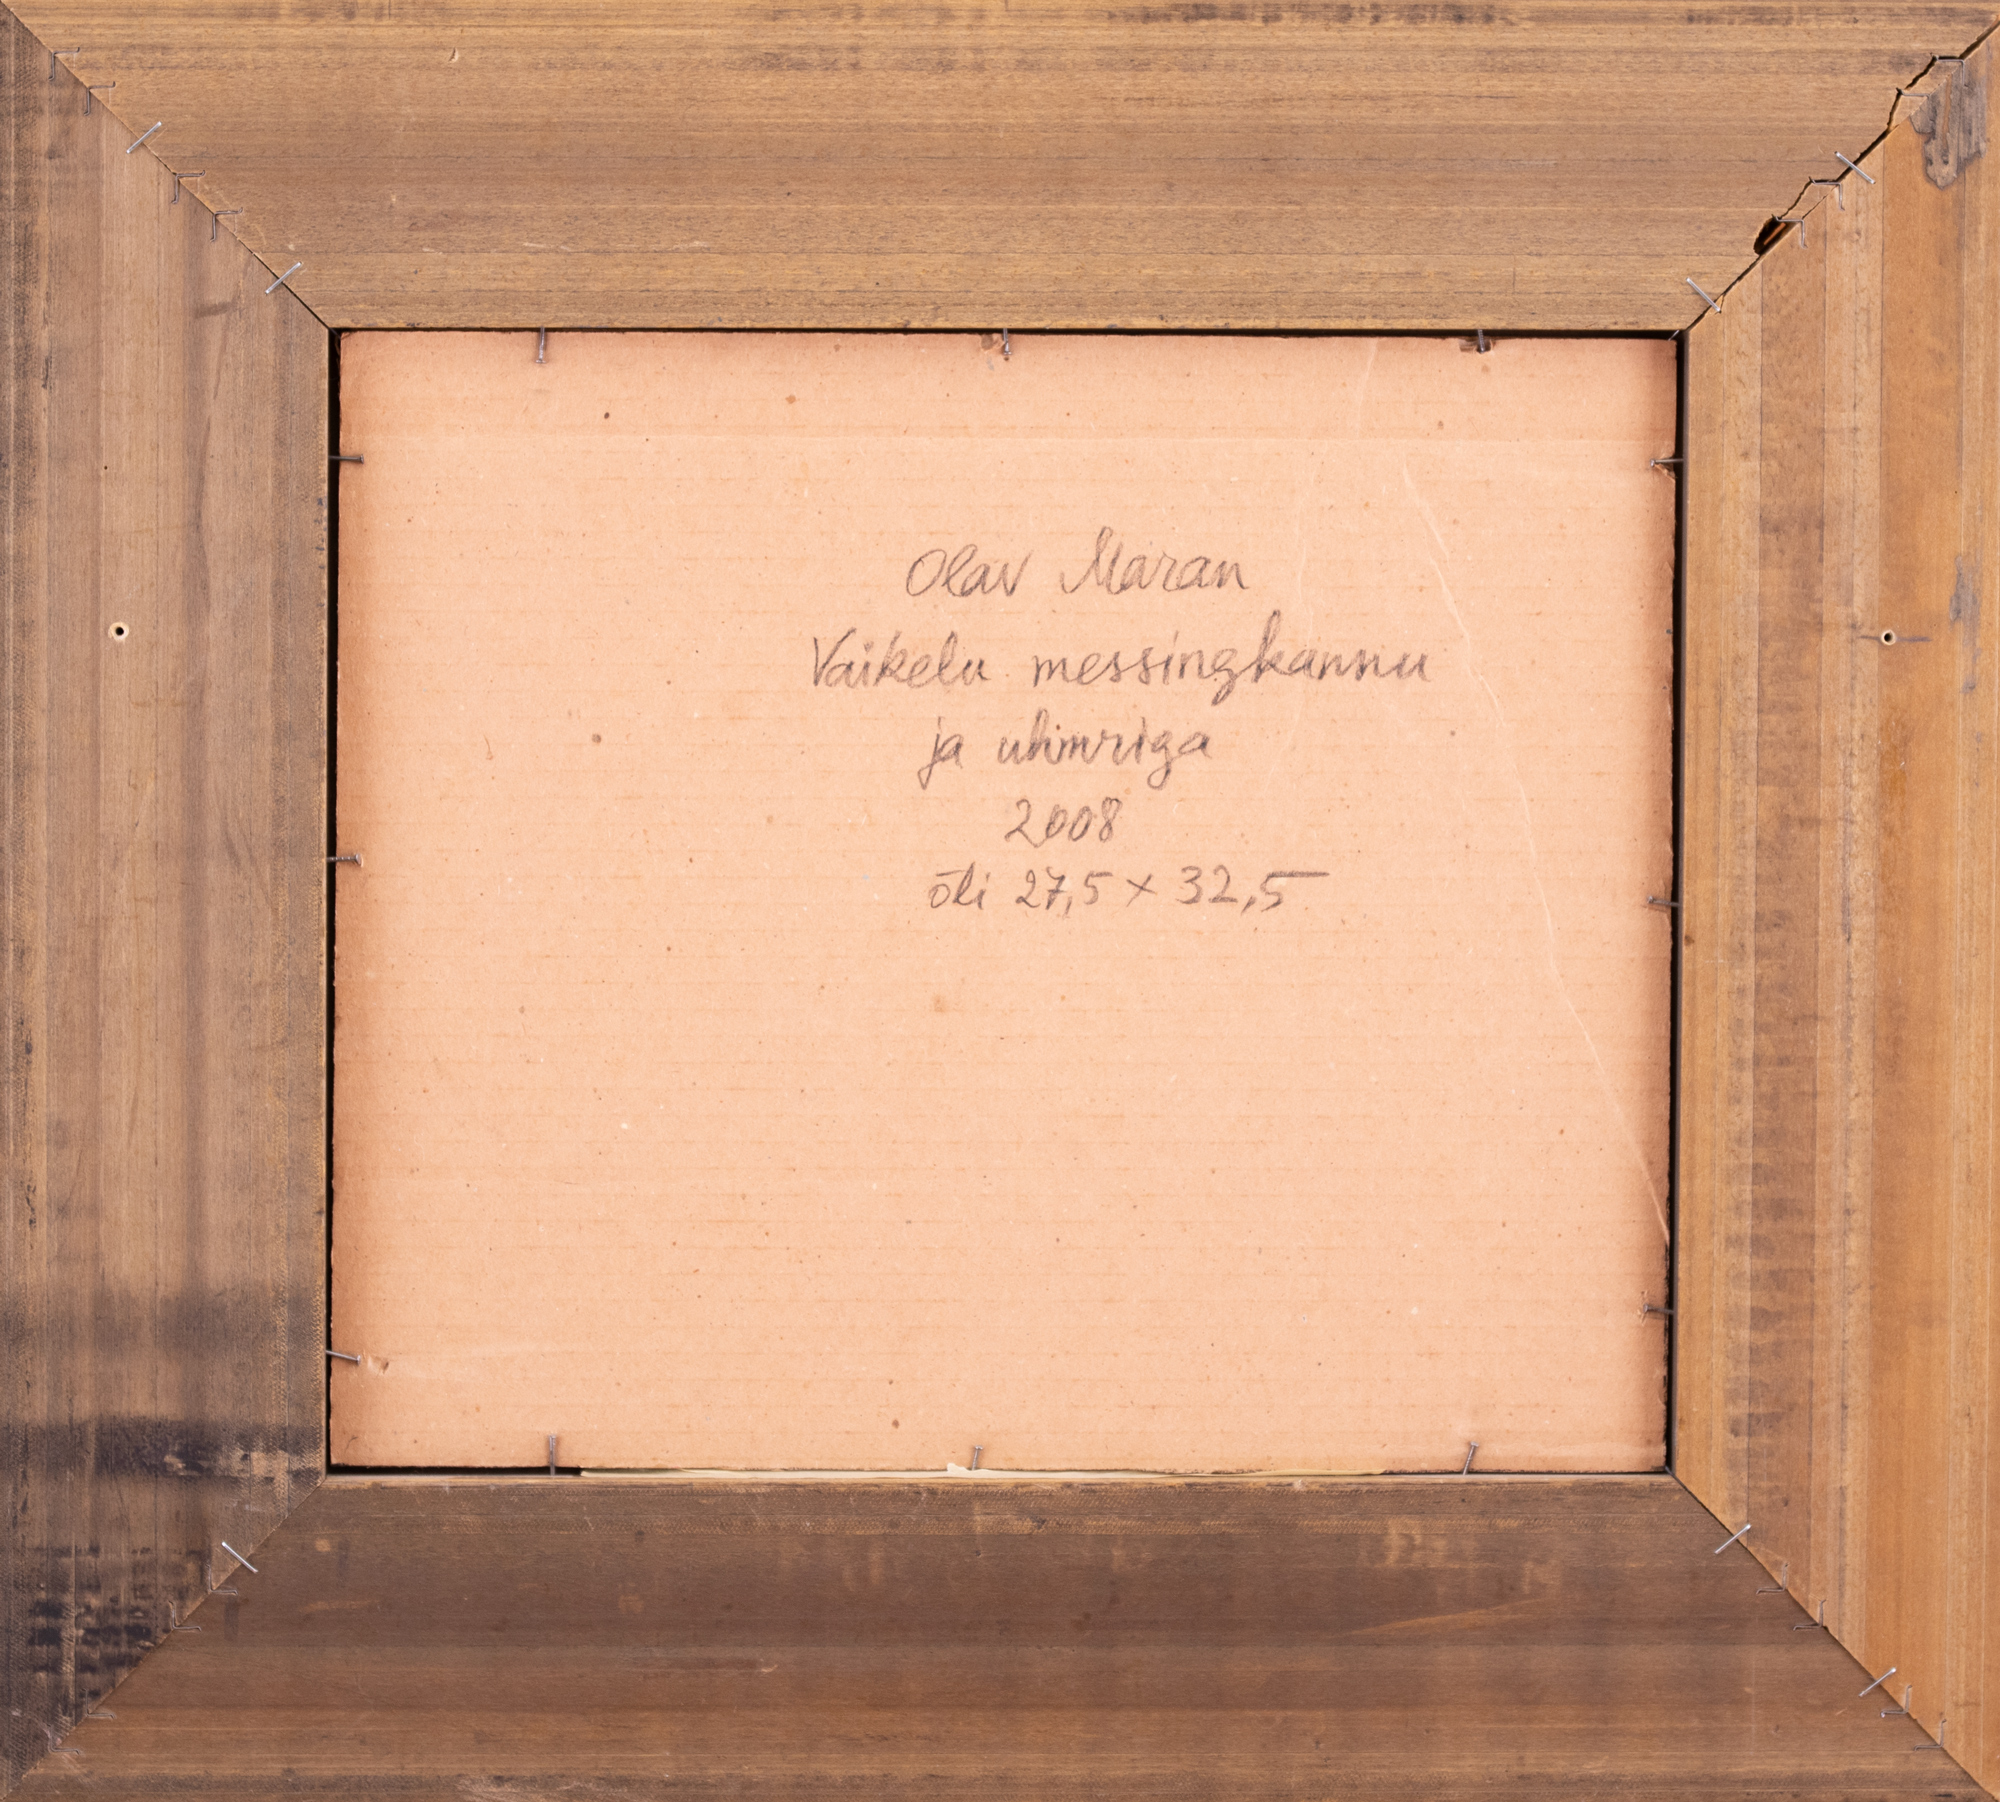 Olav Maran
Vaikelu messingkannu
ja uhmriga
2008
õli 27,5 x 32,5